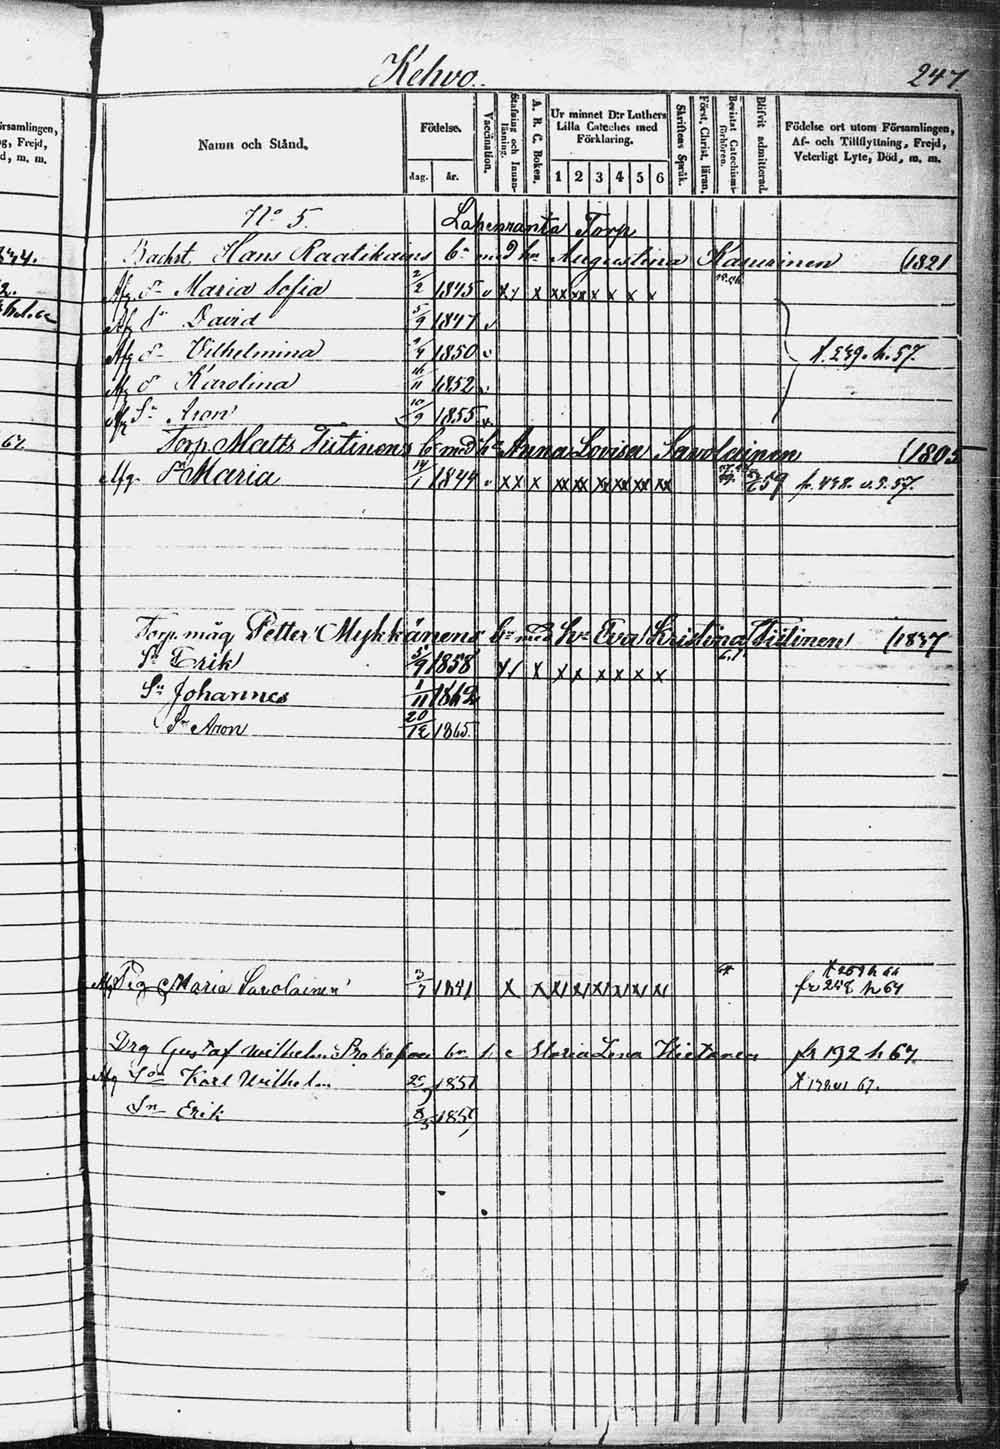 Kehvo.
247.
Namn och Stånd.
Födelse.
dag. år.
Vaccination.
Stafning och Innanläsning.
A. B. C. Boken.
Ur minnet D:r Luthers Lilla Cateches med Förklaring.
1 2 3 4 5 6
Skriftens Språk.
Först. Christ. läran.
Bevistat Catechismiförhören.
Blifvit admitterad.
Födelse ort utom Församlingen, Af- och Tillflyttning, Frejd, Veterligt Lyte, Död, m. m.
No 5. Lapenranta Torp
Bachst. Hans Raatikainens br med hu Augustina Kaurinen (1821
Afg dr Maria Sofia 2/2 1845 v x x x xx xx x x x x
Afg Sn David 5/9 1847 v
Afg dr Vilhelmina 1850 v
Afg dr Karolina 16/11 1852 v
Afg Sn Aron 10/9 1855
Torp Matts Tiitinens br med hu Anna Lovisa Savolainen (1805
Afg. dr Maria 14/1 1844 v x x x xx xx xx xx xx xx 59
Torp. måg Petter Mykkänens br med hu Eva Kristina Tiitinen (1837
Sn Erik 5/9 1858 x x x x x x x x x
Sn Johannes 1/11 1862
Sn Aron 20/12 1865.
Afg Pig Maria Savolainen 3/7 1841 x x x x x x x x
Drg Gustaf Wilhelm br Maria Lena Hietanen fr 192 h 67.
Afg Son Karl Wilhelm 25 1851
Sn Erik 1859